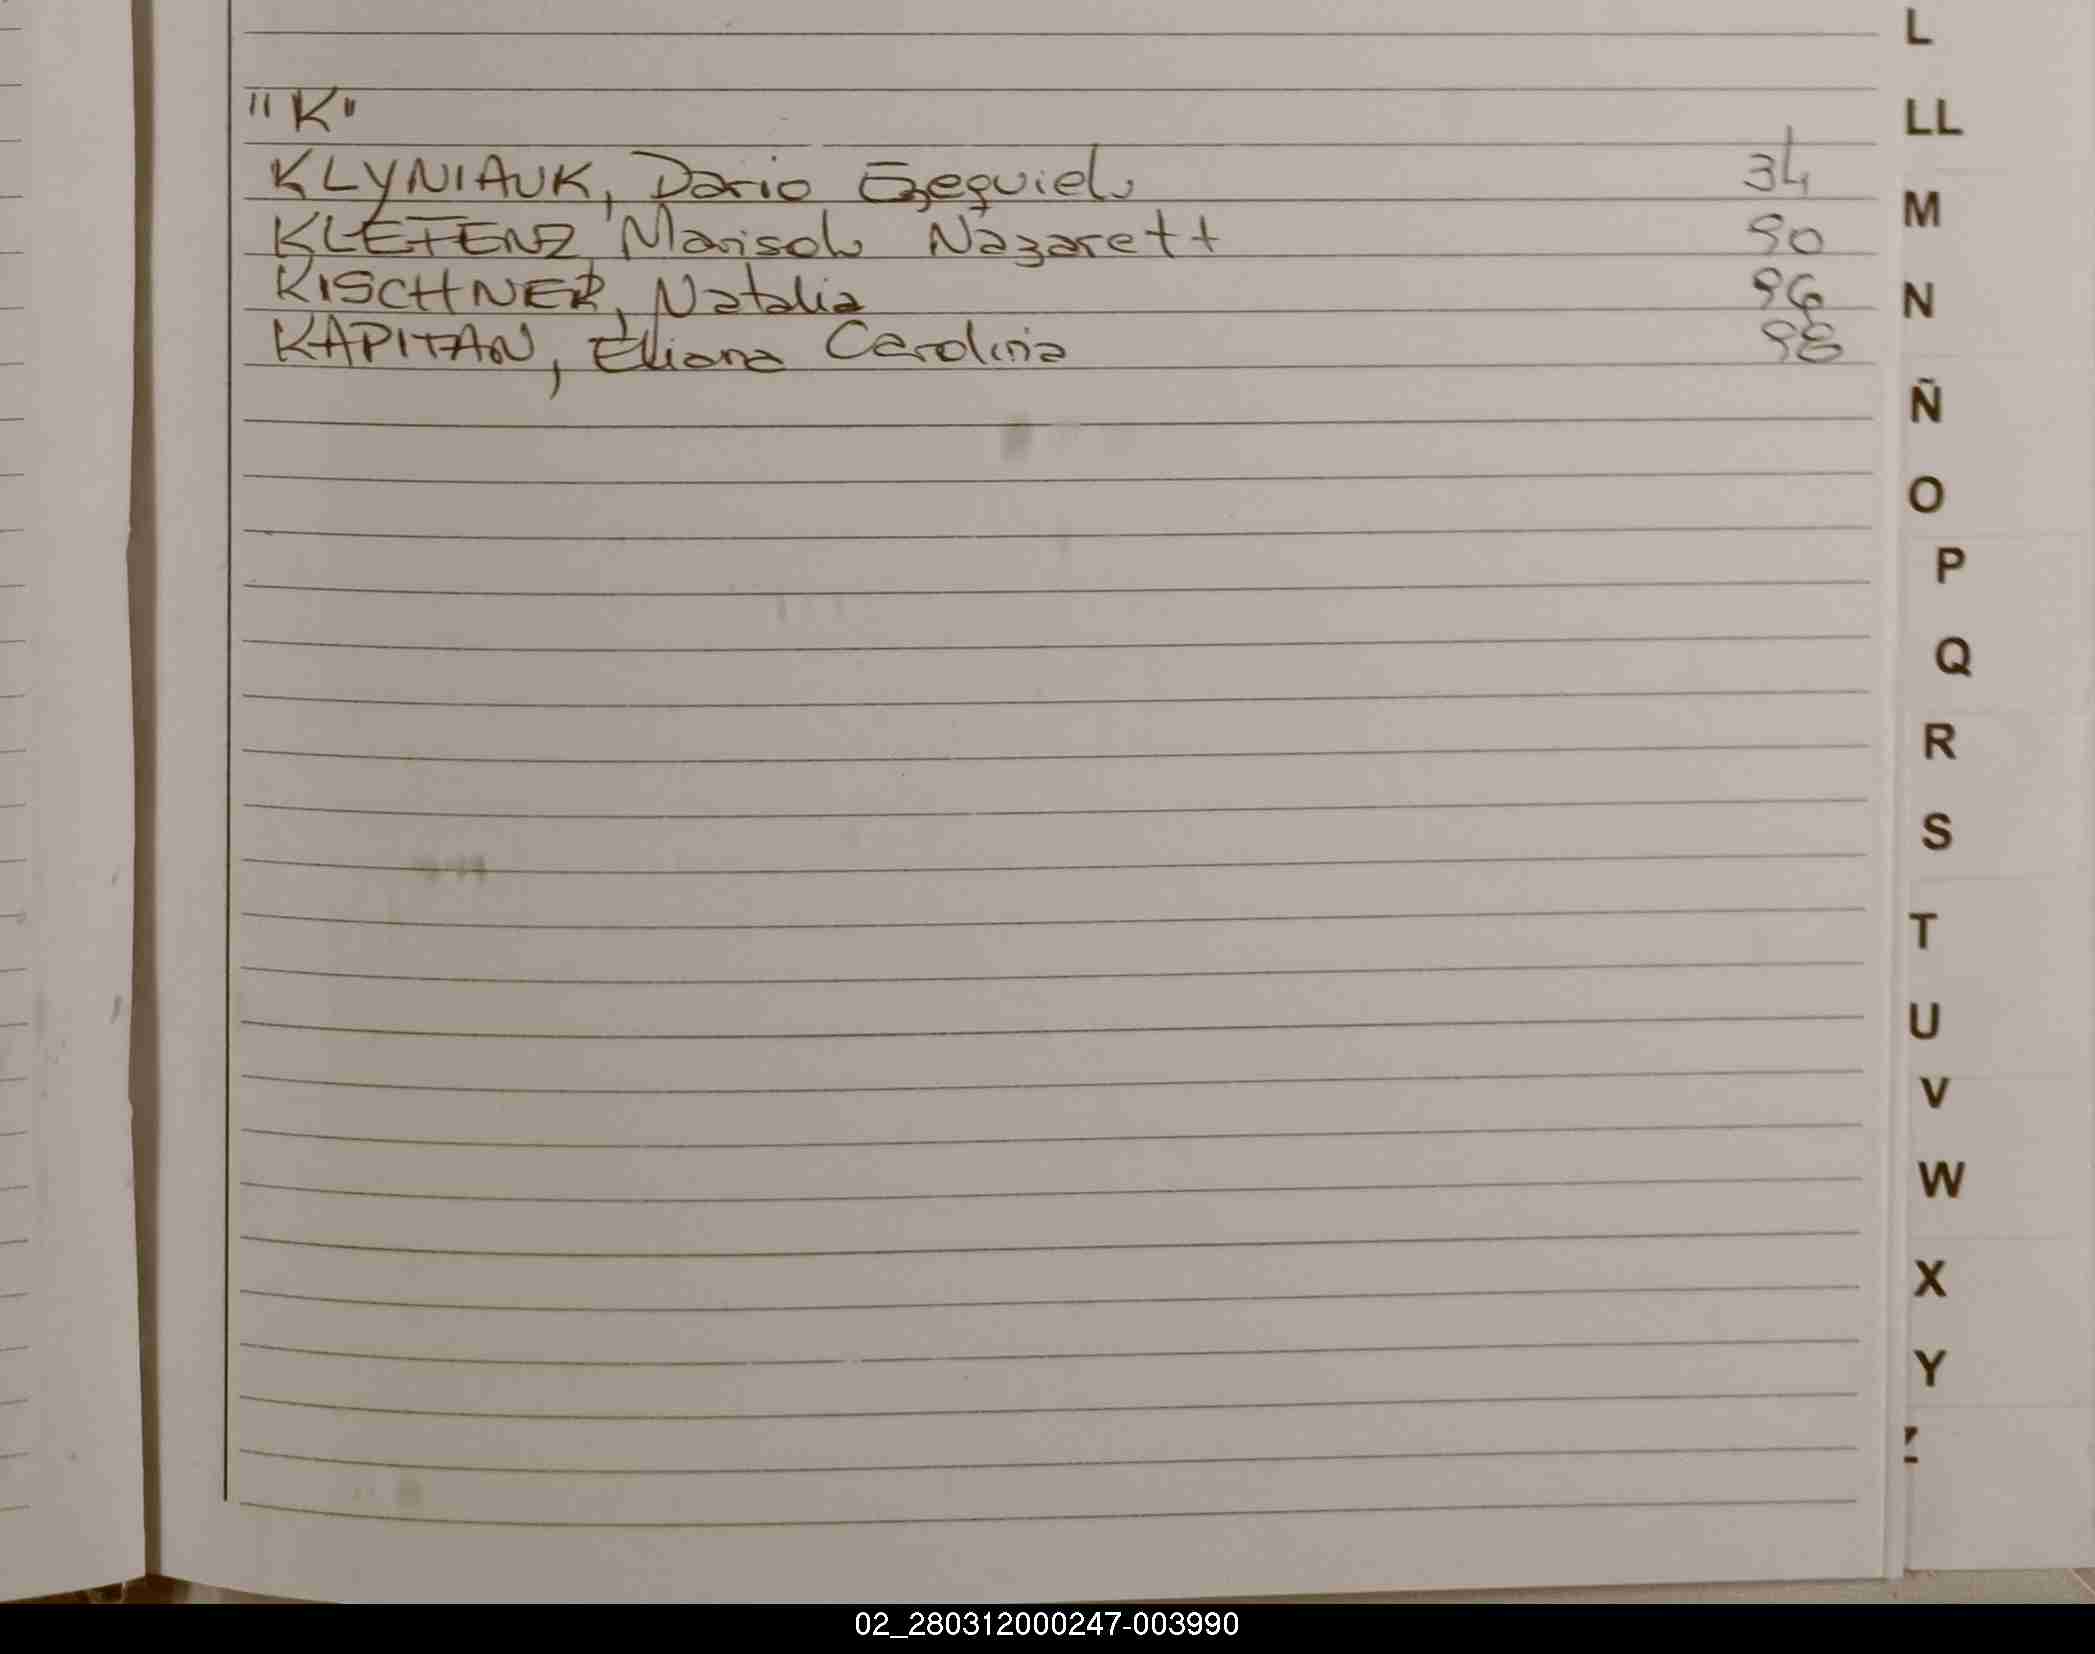 "K"
KLYNIAUK, Dario Ezequiel 34
KLETENZ, Marisol Nazarett 90
KISCHNER, Natalia 96
KAPITAN, Eliana Carolina 98
L
LL
M
N
Ñ
O
P
Q
R
S
T
U
V
W
X
Y
Z
02_280312000247-003990